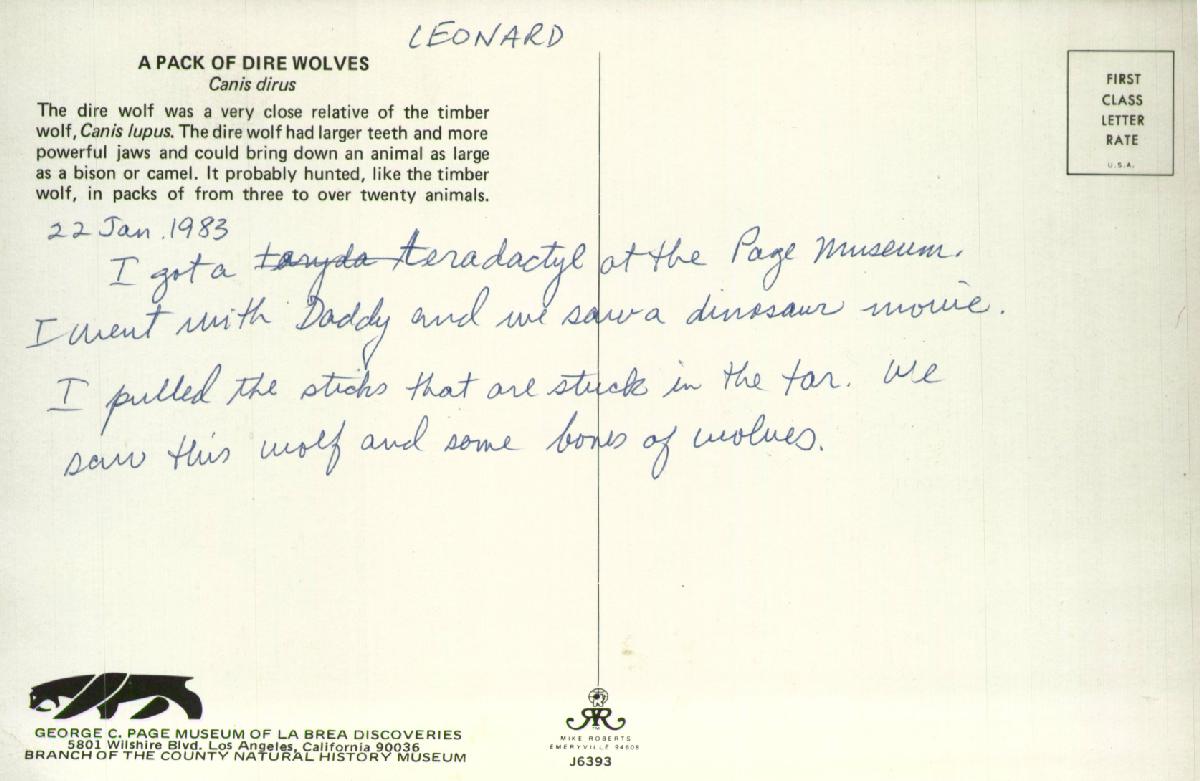 LEONARD
A PACK OF DIRE WOLVES
Canis dirus
The dire wolf was a very close relative of the timber
wolf, Canis lupus. The dire wolf had larger teeth and more
powerful jaws and could bring down an animal as large
as a bison or camel. It probably hunted, like the timber
wolf, in packs of from three to over twenty animals.
FIRST
CLASS
LETTER
RATE
U.S.A.
22 Jan. 1983
I got a teradactyl at the Page Museum.
I went with Daddy and we saw a dinosaur movie.
I pulled the sticks that are stuck in the tar. We
saw this wolf and some bones of wolves.
GEORGE C. PAGE MUSEUM OF LA BREA DISCOVERIES
5801 Wilshire Blvd. Los Angeles, California 90036
BRANCH OF THE COUNTY NATURAL HISTORY MUSEUM
MIKE ROBERTS
EMERYVILLE 94608
J6393